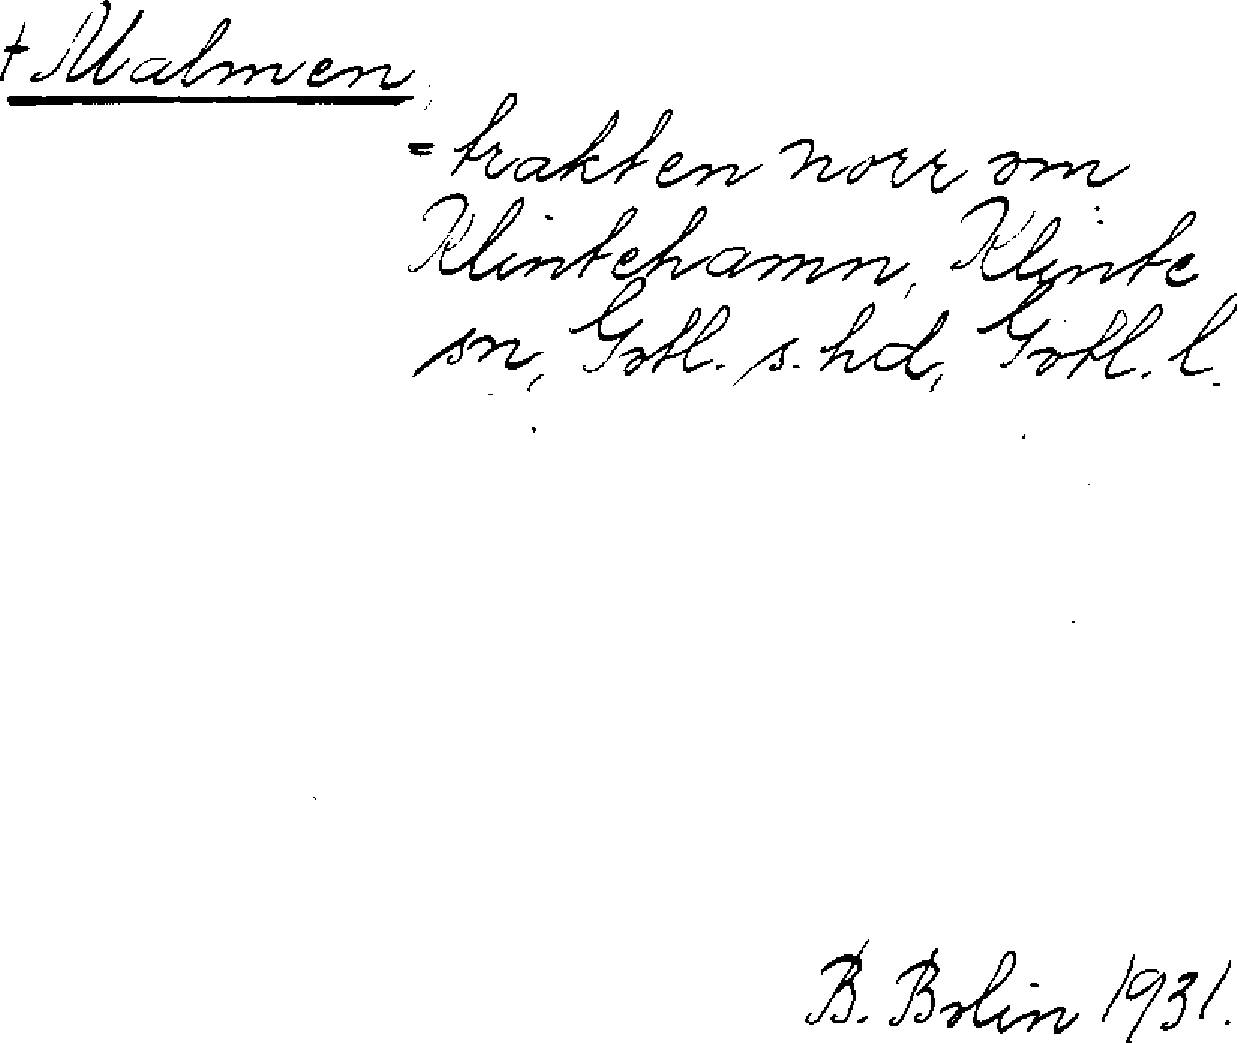 † Malmen,
= trakten norr om
Klintehamn, Klinte
sn, Gotl. s. hd, Gotl. l.
B. Bolin 1931.